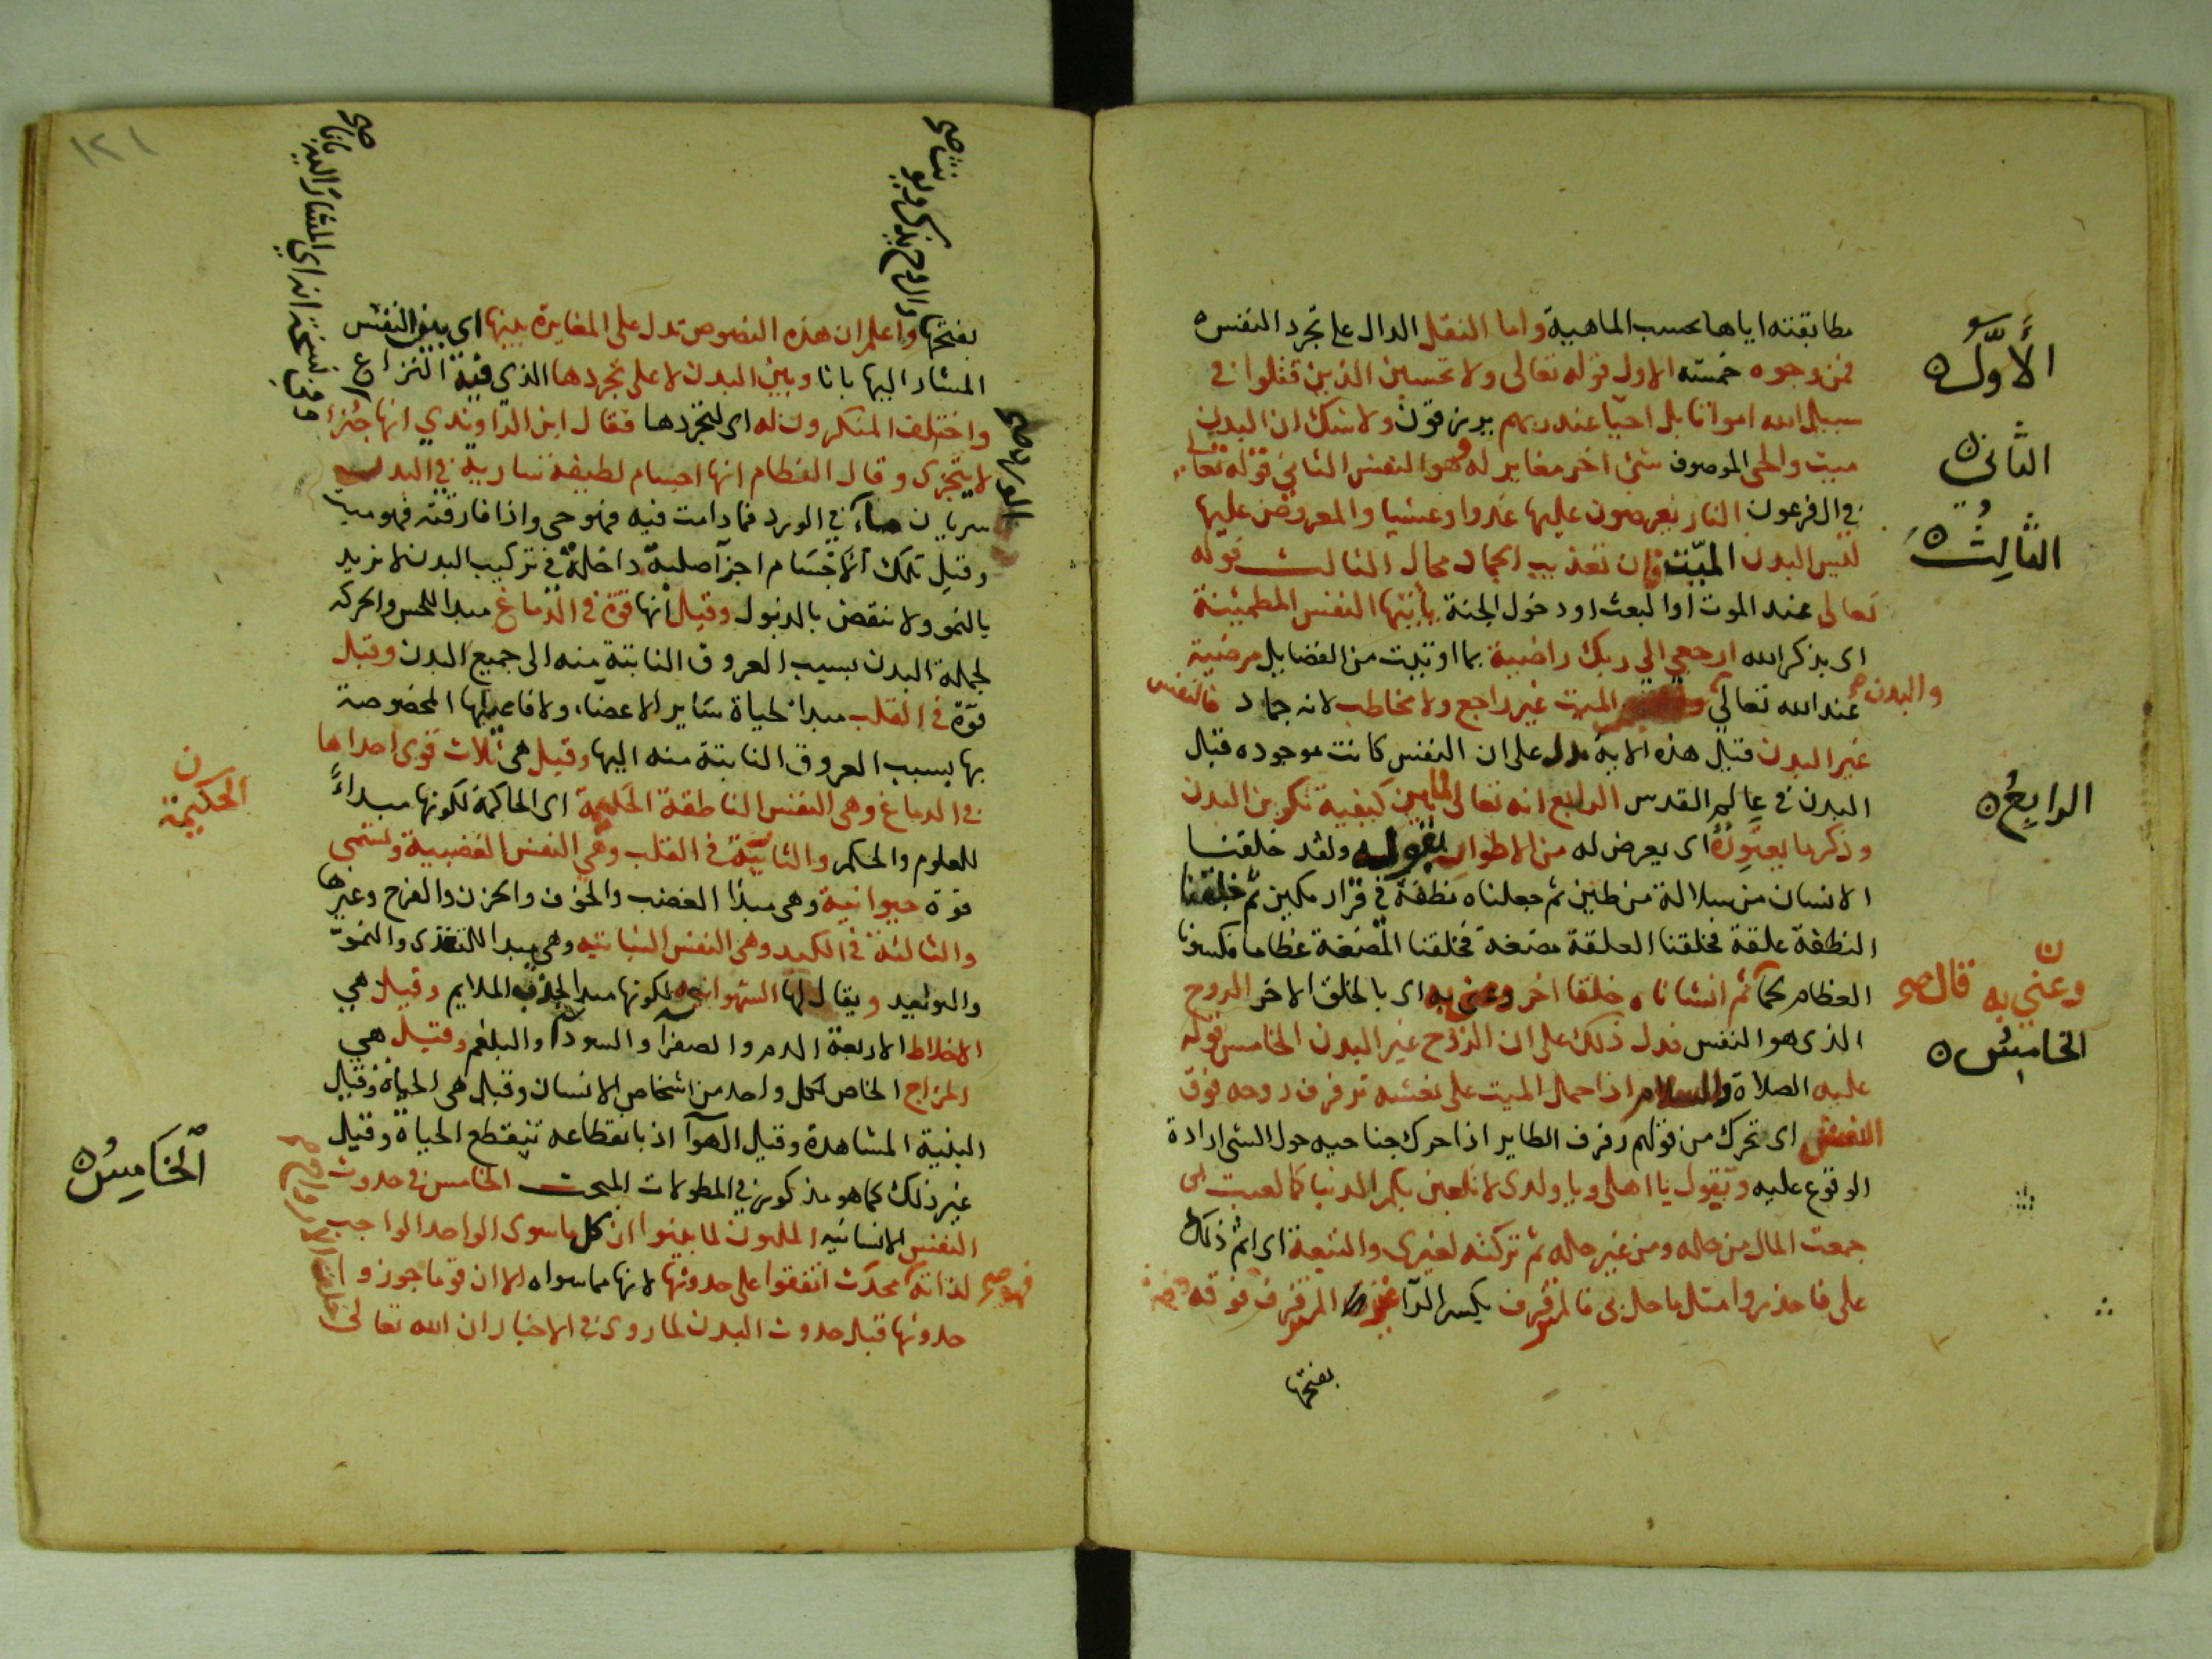 مطابقته اياها بحسب الماهية واما النقل الدال على تجرد النفس
فمن وجوه خمسة الاول قوله تعالى ولا تحسبن الذين قتلوا في
سبيل الله امواتا بل احيآ عند ربهم يرزقون ولا شك ان البدن
ميت والحي الموصوف شئ اخر مغاير له وهو النفس الثاني قوله تعالى
في ال فرعون النار يعرضون عليها غدوا وعشيا والمعروض عليها
ليس البدن الميت فان تعذيب الجماد محال الثالث قوله
تعالى عند الموت او البعث او دخول الجنة يا أيتها النفس المطمئنة
اى بذكر الله ارجعي الي ربك راضية بما اوتيت من الفضايل مرضية
عند الله تعالى الميت غير راجع ولا مخاطب لانه جماد فالنفس
غير البدن قيل هذه الاية تدل على ان النفس كانت موجوده قبل
البدن في عالم القدس الرابع انه تعالى لما بين كيفية تكوين البدن
وذكر ما يعتوره اى يعرض له من الاطوار بقوله ولقد خلقنا
الانسان من سلالة من طين ثم جعلناه نطفة في قرار مكين ثم خلقنا
النطفة علقة فخلقنا العلقة مضغة فخلقنا المضغة عظاما فكسونا
العظام لحما ثم انشاناه خلقا اخر وعنى به اى بالخلق الاخر الروح
الذى هو النفس فدل ذلك على ان الروح غير البدن الخامس قوله
عليه الصلاة والسلام اذا حمل الميت على نعشه ترفرف روحه فوق
النعش اى تحرك من قولهم رفرف الطاير اذا حرك جناحيه حول الشئ ارادة
الوقوع عليه ويقول يا اهلى ويا ولدى لا تلعبن بكم الدنيا كما لعبت بى
جمعت المال من حله ومن غير حله ثم تركته لغيرى والتبعة اى اثم ذلك
على فاحذروا مثل ما حل بى فالمرفرف بكسر الرآ غير المرفرف فوقه
بفتحها
الأول
الثاني
الثالث
والبدن صح
الرابع
ن
وعني به قال صح
الخامس
بفتحها واعلم ان هذه النصوص تدل على المغايرة بينها اى بين النفس
المشار اليها بانا وبين البدن لا على تجردها الذي فيه النزاع
واختلف المنكرون له اى لتجردها فقال ابن الراوندي انها جزء
لا يتجزى وقال النظام انها اجسام لطيفة سارية في البدن
سريان مآء في الورد فما دامت فيه فهو حى واذا فارقته فهو ميت
وقيل تلك الاجسام اجزآ اصلية داخلة في تركيب البدن لا تزيد
بالنمو ولا تنقص بالذبول وقيل انها قوة في الدماغ مبدا للحس والحركه
لجملة البدن بسبب العروق النابتة منه الى جميع البدن وقيل
قوة في القلب مبدا لحياة سائر الاعضاء ولافاعيلها المخصوصة
بها بسبب العروق النابتة منه اليها وقيل هى ثلاث قوى احداها
في الدماغ وهى النفس الناطقة الحكيمة اى الحاكمة لكونها مبداءً
للعلوم والحكم والثانية في القلب وهي النفس الغضبية وتسمى
قوة حيوانية وهى مبدا الغضب والخوف والحزن والفرح وغيرها
والثالثة في الكبد وهى النفس النباتيه وهى مبدا التغذى والنمو
والتوليد ويقال لها الشهوانيه لكونها مبدا لجذب الملايم وقيل هي
الاخلاط الاربعة الدم والصفرآ والسودآ والبلغم وقيل هي
المزاج الخاص لكل واحد من اشخاص الانسان وقيل هى الحياة وقيل
البنية المشاهدة وقيل الهوآ اذ بانقطاعه تنقطع الحياة وقيل
غير ذلك كما هو مذكور في المطولات المبحث الخامس في حدوث
النفس الانسانيه المليون لما بينوا ان كل ما سوى الواحد الواجب
لذاته محدث اتفقوا على حدوثها لانها مما سواه الا ان قوما جوزوا
حدوثها قبل حدوث البدن لما روى في الاخبار ان الله تعالى
والروح يذكر ويؤنث صح
ن
الحكيمة
الخامس
فهو صح
١٢١